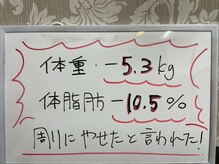 体重 -5.3kg
体脂肪 -10.5%
周りにやせたと言われた!